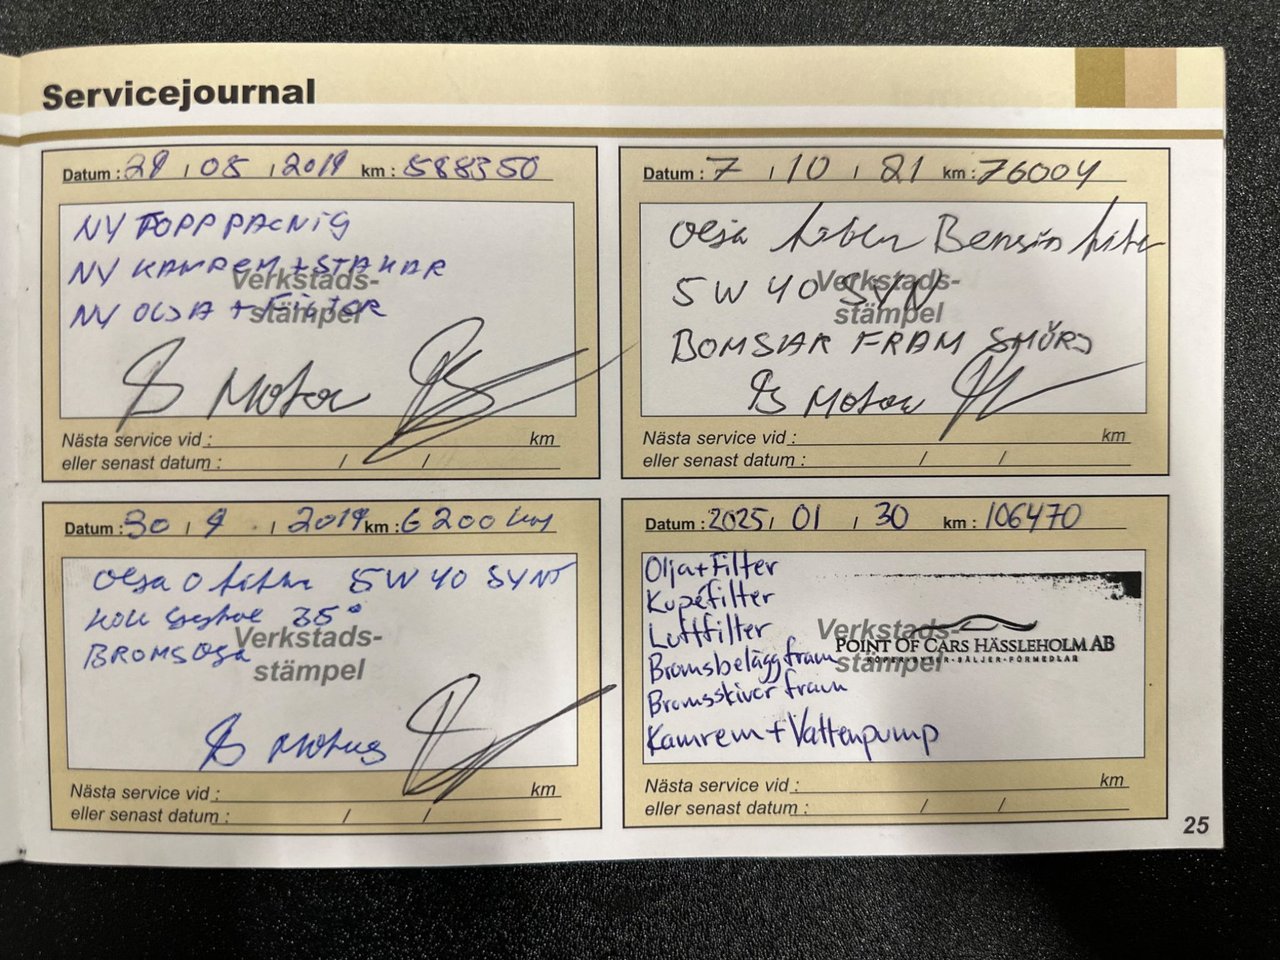 Servicejournal
Datum : 29 / 05 / 2019 km : 588350
NY TOPPPACNIG
NY KAMREM + STAKAR
NY OLJA + FILTER
Verkstads-
stämpel
Motor
Nästa service vid : km
eller senast datum : / /
Datum : 7 / 10 / 21 km : 76004
Olja Bensin
5W40 SYN
BOMSAR FRAM SMÖRJ
Verkstads-
stämpel
Motor
Nästa service vid : km
eller senast datum : / /
Datum : 30 / 9 / 2019 km : 6200 km
Olja O 5W40 SYNT
35°
BROMSOJA
Verkstads-
stämpel
Nästa service vid : km
eller senast datum : / /
Datum : 2025 / 01 / 30 km : 106470
Olja+Filter
Kupéfilter
Luftfilter
Bromsbelägg fram
Bromsskivor fram
Kamrem + Vattenpump
Verkstads-
stämpel
POINT OF CARS HÄSSLEHOLM AB
KÖPER·BYTER·SÄLJER·FÖRMEDLAR
Nästa service vid : km
eller senast datum : / /
25